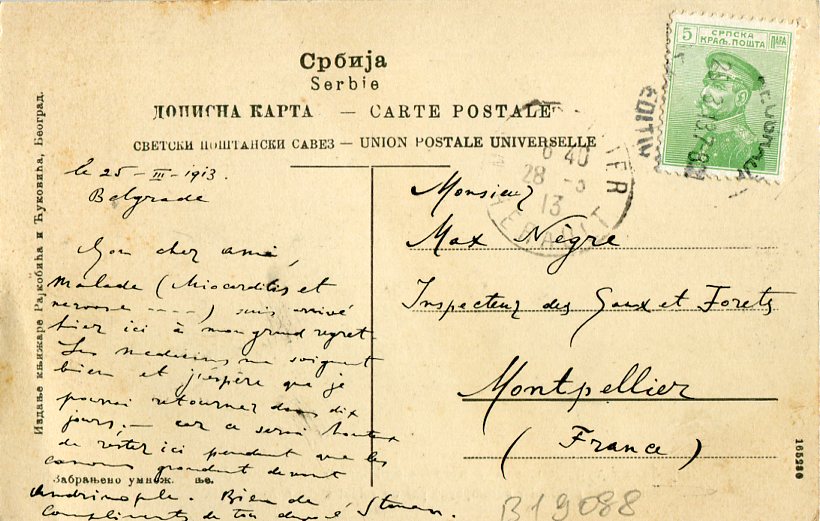 Србија
Serbie
ДОПИСНА КАРТА — CARTE POSTALE
СВЕТСКИ ПОШТАНСКИ САВЕЗ – UNION POSTALE UNIVERSELLE
5 СРПСКА КРАЉ. ПОШТА ПАРА
6 40
28 - 3
13
HERAULT
Издање књижаре Рајковића и Ћуковића, Београд.
le 25 – III – 1913.
Belgrade
Mon cher ami,
Malade (Miocarditis et
nervose ----) suis arrivé
hier ici à mon grand regret.
Les medecins me soignent
bien et j'espère que je
pourrai retourner dans dix
jours, – car ce serai honteux
de rester ici pendant que les
canons grondent devant
Andrinople. Bien de
compliments de ton devoué
Monsieur
Max Nègre
Inspecteur des Eaux et Forets
Montpellier
(France)
Забрањено умнож. ње.
165286
B19088